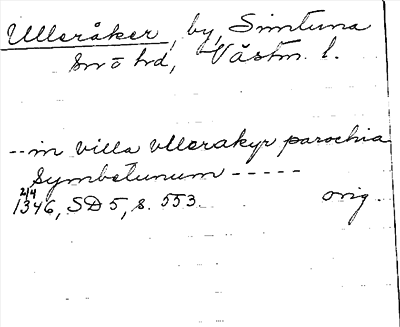 Ulleråker, by, Simtuna
sn o hd, Västm. l.
--in villa vllerakyr parochia
Symbetunum -----
2/4
1346, SD 5, s. 553. orig.